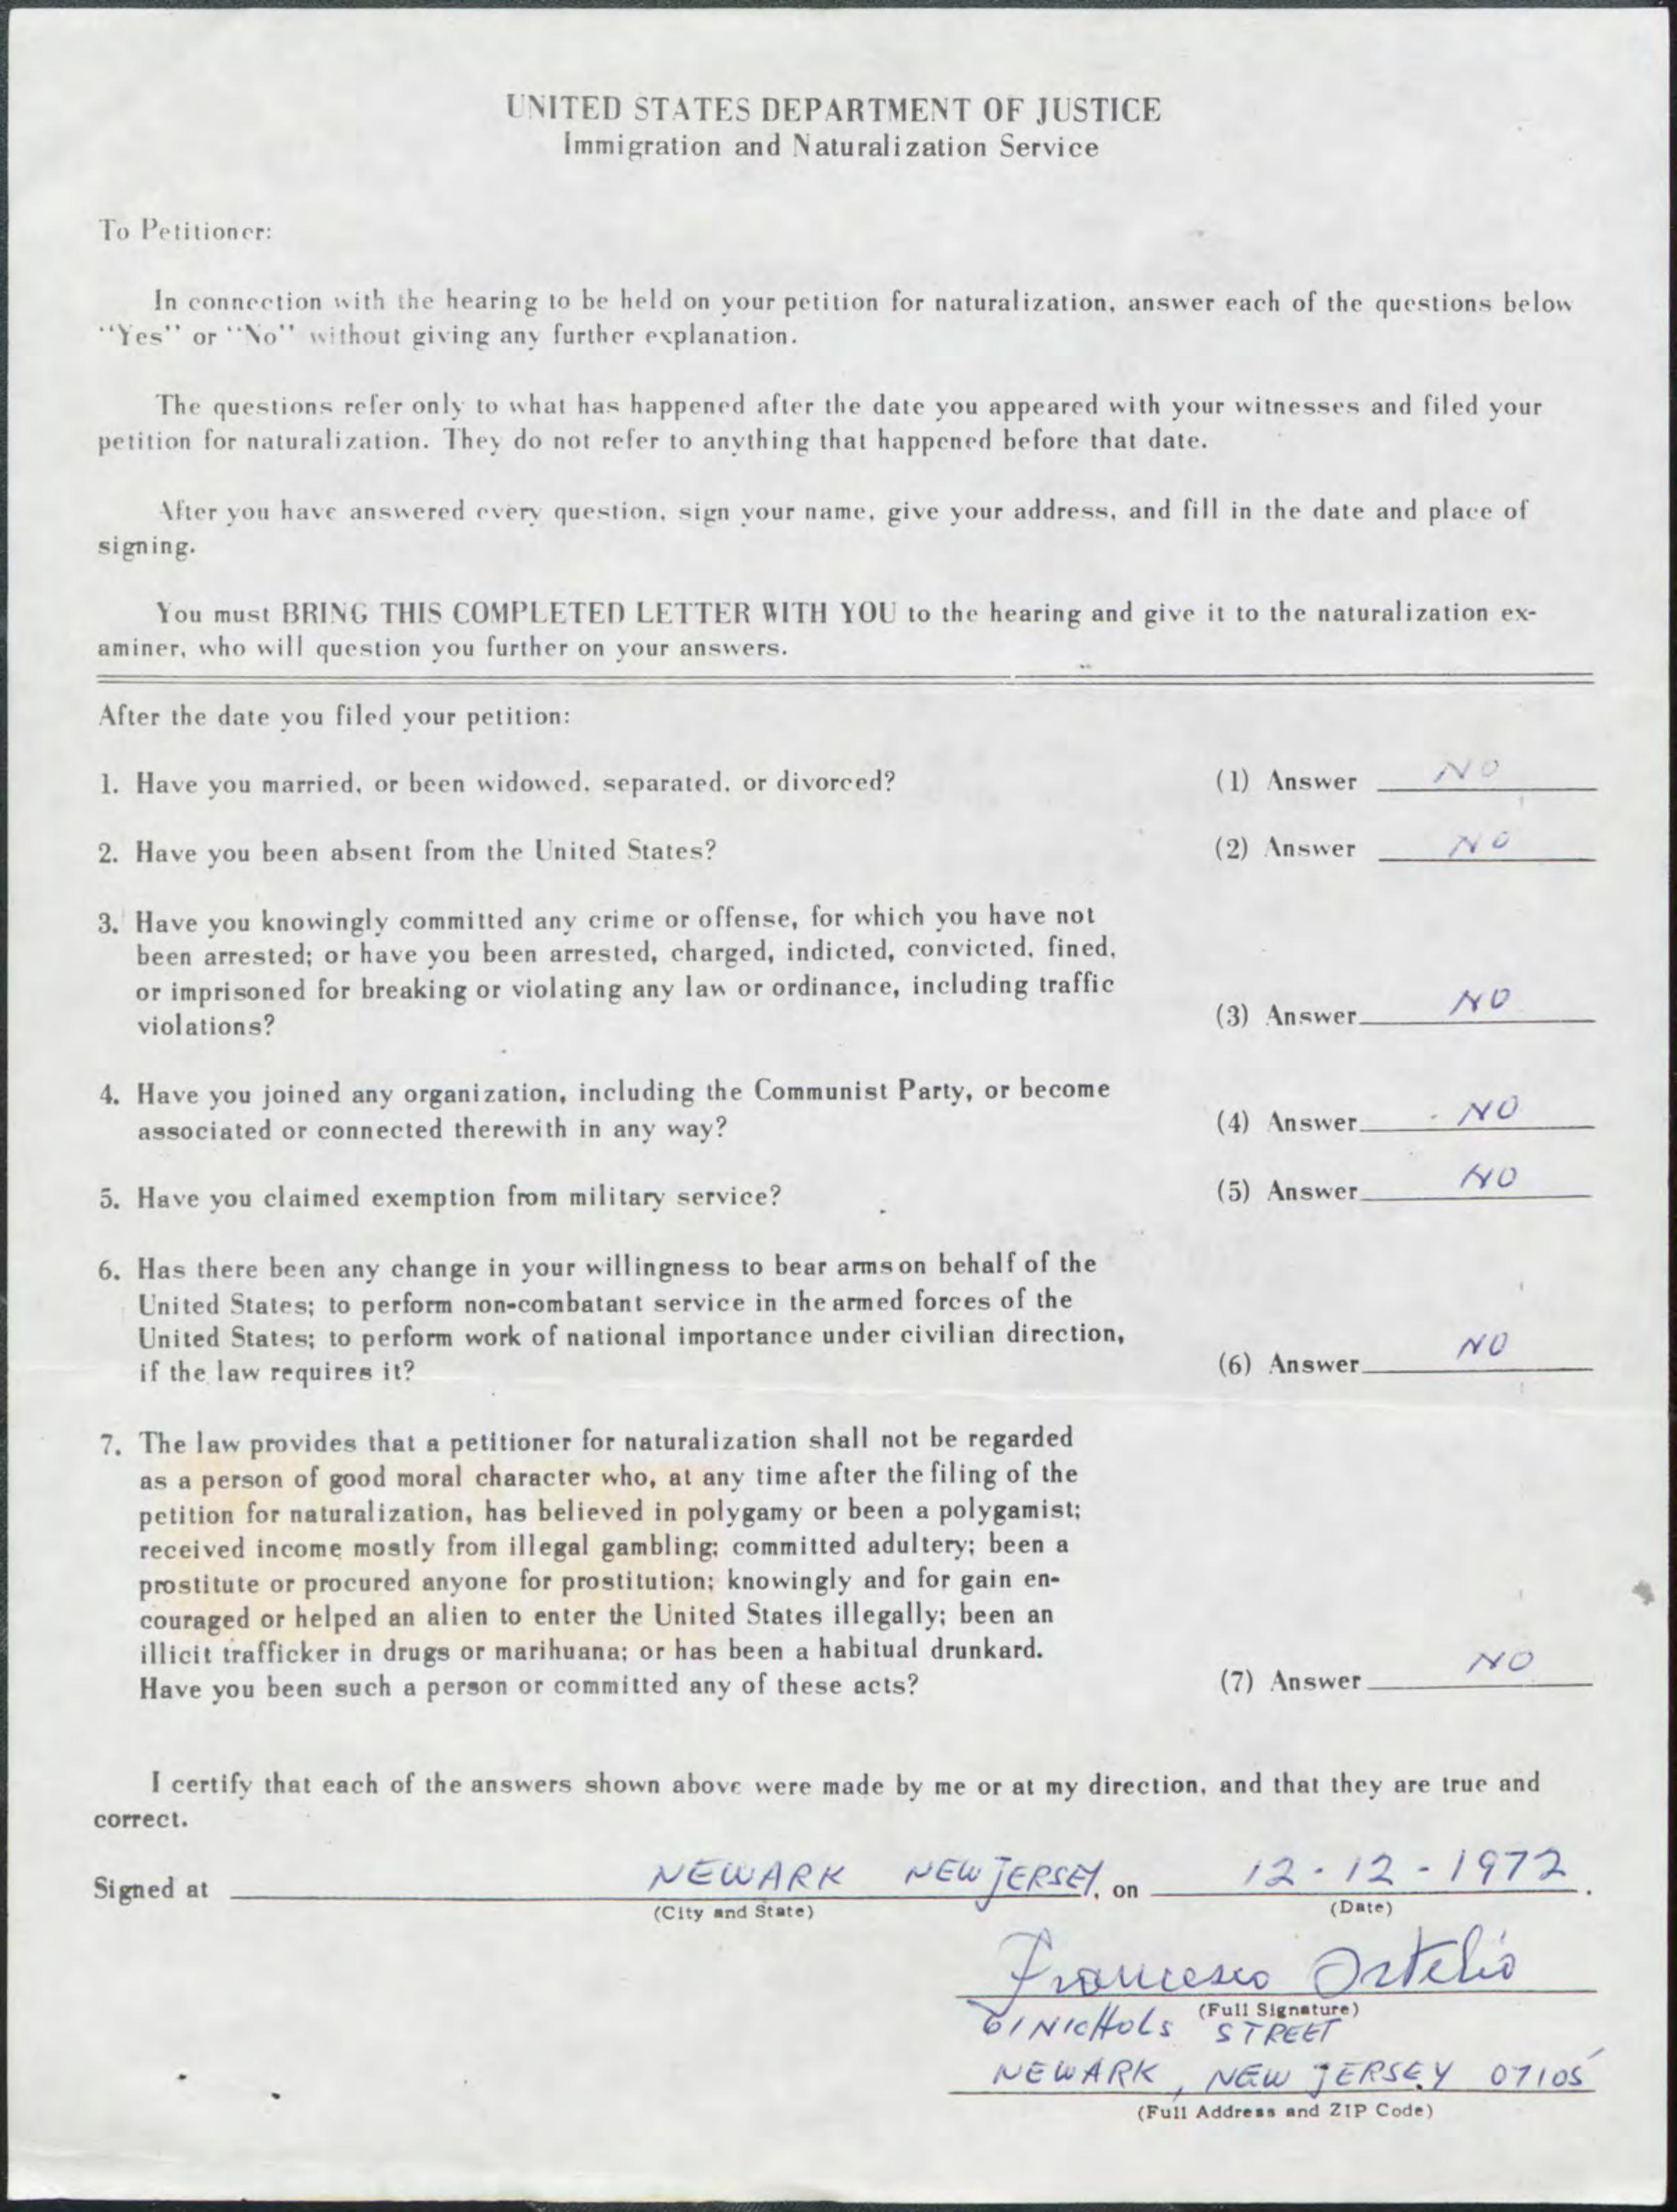 UNITED STATES DEPARTMENT OF JUSTICE
Immigration and Naturalization Service
To Petitioner:
In connection with the hearing to be held on your petition for naturalization, answer each of the questions below
"Yes" or "No" without giving any further explanation.
The questions refer only to what has happened after the date you appeared with your witnesses and filed your
petition for naturalization. They do not refer to anything that happened before that date.
After you have answered every question, sign your name, give your address, and fill in the date and place of
signing.
You must BRING THIS COMPLETED LETTER WITH YOU to the hearing and give it to the naturalization ex-
aminer, who will question you further on your answers.
After the date you filed your petition:
1. Have you married, or been widowed, separated, or divorced? (1) Answer NO
2. Have you been absent from the United States? (2) Answer NO
3. Have you knowingly committed any crime or offense, for which you have not
been arrested; or have you been arrested, charged, indicted, convicted, fined,
or imprisoned for breaking or violating any law or ordinance, including traffic
violations? (3) Answer NO
4. Have you joined any organization, including the Communist Party, or become
associated or connected therewith in any way? (4) Answer NO
5. Have you claimed exemption from military service? (5) Answer NO
6. Has there been any change in your willingness to bear arms on behalf of the
United States; to perform non-combatant service in the armed forces of the
United States; to perform work of national importance under civilian direction,
if the law requires it? (6) Answer NO
7. The law provides that a petitioner for naturalization shall not be regarded
as a person of good moral character who, at any time after the filing of the
petition for naturalization, has believed in polygamy or been a polygamist;
received income mostly from illegal gambling; committed adultery; been a
prostitute or procured anyone for prostitution; knowingly and for gain en-
couraged or helped an alien to enter the United States illegally; been an
illicit trafficker in drugs or marihuana; or has been a habitual drunkard.
Have you been such a person or committed any of these acts? (7) Answer NO
I certify that each of the answers shown above were made by me or at my direction, and that they are true and
correct.
Signed at NEWARK NEW JERSEY, on 12-12-1972.
(City and State) (Date)
Francesco Ortelio
(Full Signature)
NICHOLS STREET
NEWARK, NEW JERSEY 07105
(Full Address and ZIP Code)